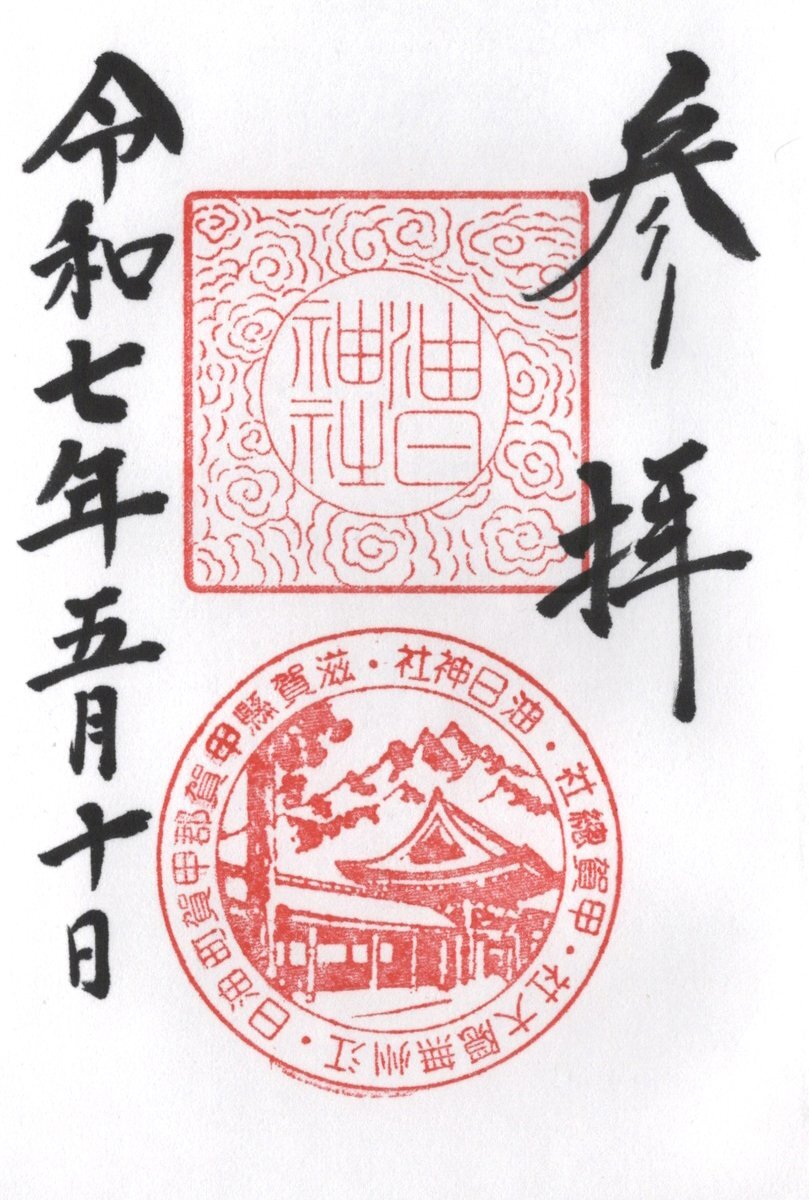 参拝
油日
神社
油日神社・滋賀縣甲賀郡甲賀町油日・江州無隠大社・甲賀總社・
令和七年五月十日